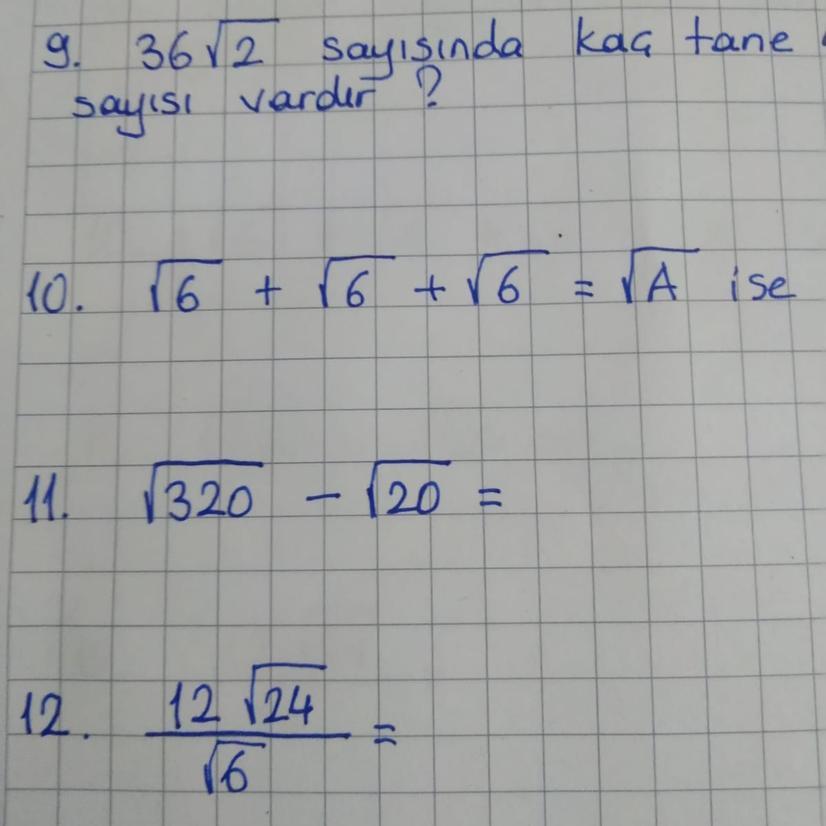 9. 36√2 sayısında kaç tane
sayısı vardır ?
10. √6 + √6 + √6 = √A ise
11. √320 - √20 =
12. 12 √24
√6 =